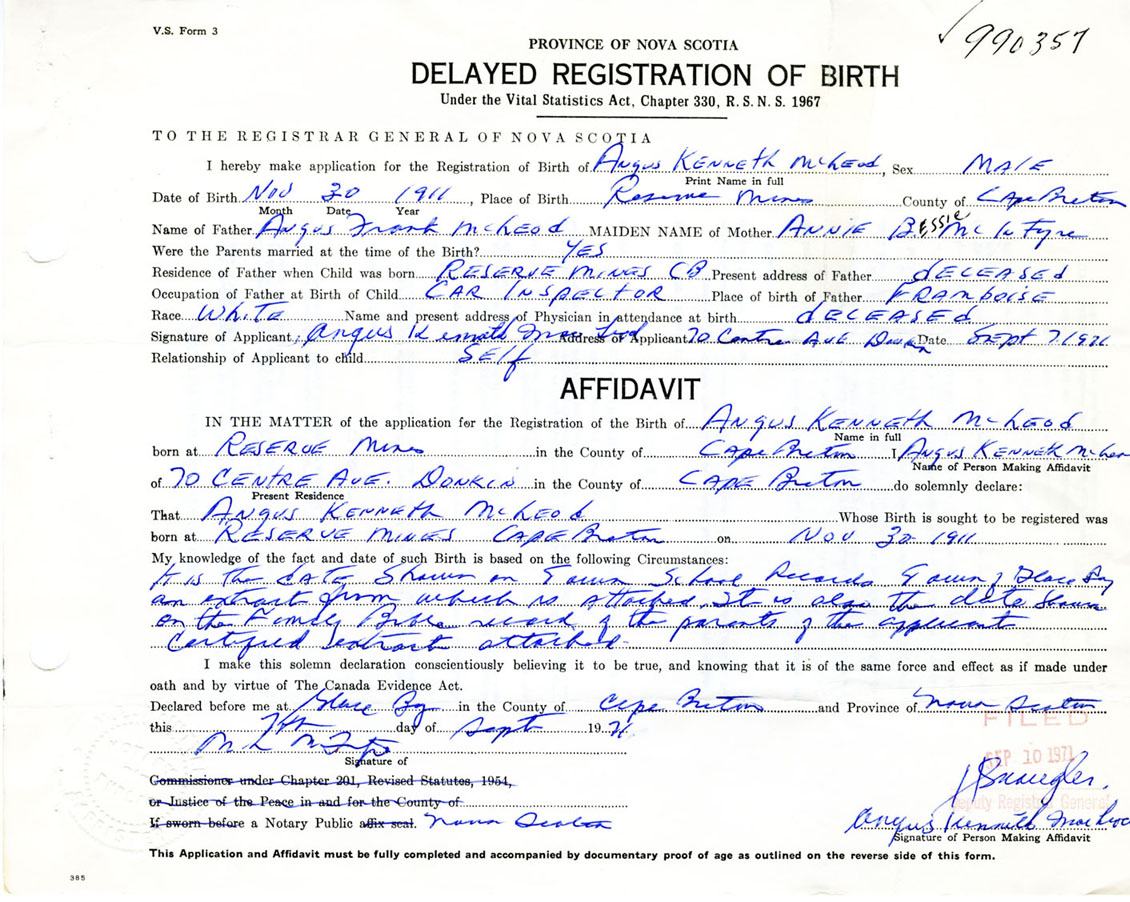 V.S. Form 3
990357
PROVINCE OF NOVA SCOTIA
DELAYED REGISTRATION OF BIRTH
Under the Vital Statistics Act, Chapter 330, R.S.N.S. 1967
TO THE REGISTRAR GENERAL OF NOVA SCOTIA
I hereby make application for the Registration of Birth of Angus Kenneth McLeod, Sex MALE
Print Name in full
Date of Birth Nov 30 1911, Place of Birth Reserve Mines County of Cape Breton
Month Date Year
Name of Father Angus Frank McLeod MAIDEN NAME of Mother ANNIE BESSIE McIntyre
Were the Parents married at the time of the Birth? YES
Residence of Father when Child was born RESERVE MINES CB Present address of Father dECEASEd
Occupation of Father at Birth of Child CAR INSPECTOR Place of birth of Father FRAMboISE
Race White Name and present address of Physician in attendance at birth dECEASEd
Signature of Applicant Angus Kenneth MacLeod Address of Applicant 70 Centre AVE Donkin Date Sept 7 1971
Relationship of Applicant to child SELf
AFFIDAVIT
IN THE MATTER of the application for the Registration of the Birth of ANGUS KENNETH McLEOd
Name in full
born at RESERVE Mines in the County of Cape Breton I Angus KENNETH McLeod
Name of Person Making Affidavit
of 70 CENTRE AVE. DONKIN in the County of CAPE Breton do solemnly declare:
Present Residence
That ANGUS KENNETH McLEOd Whose Birth is sought to be registered was
born at RESERVE MINES CAPE Breton on Nov 30 1911
My knowledge of the fact and date of such Birth is based on the following Circumstances:
It is the date shown on Town School Records Town of Glace Bay
an extract from which is attached. It is also the date shown
on the Family Bible record of the parents of the applicant
Certified extract attached
I make this solemn declaration conscientiously believing it to be true, and knowing that it is of the same force and effect as if made under
oath and by virtue of The Canada Evidence Act.
Declared before me at Glace Bay in the County of Cape Breton and Province of Nova Scotia
this 7th day of Sept 1971
FILED
SEP 10 1971
Signature of
Commissioner under Chapter 201, Revised Statutes, 1954,
or Justice of the Peace in and for the County of
Deputy Registrar General
If sworn before a Notary Public affix seal. Nova Scotia
Angus Kenneth MacLeod
Signature of Person Making Affidavit
This Application and Affidavit must be fully completed and accompanied by documentary proof of age as outlined on the reverse side of this form.
385